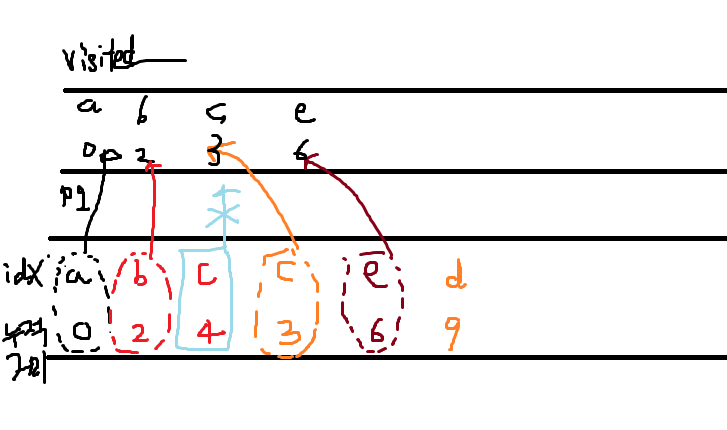 visited
a b c e
0 2 3 6
pq
idx a b c c e d
누적 0 2 4 3 6 9
거리